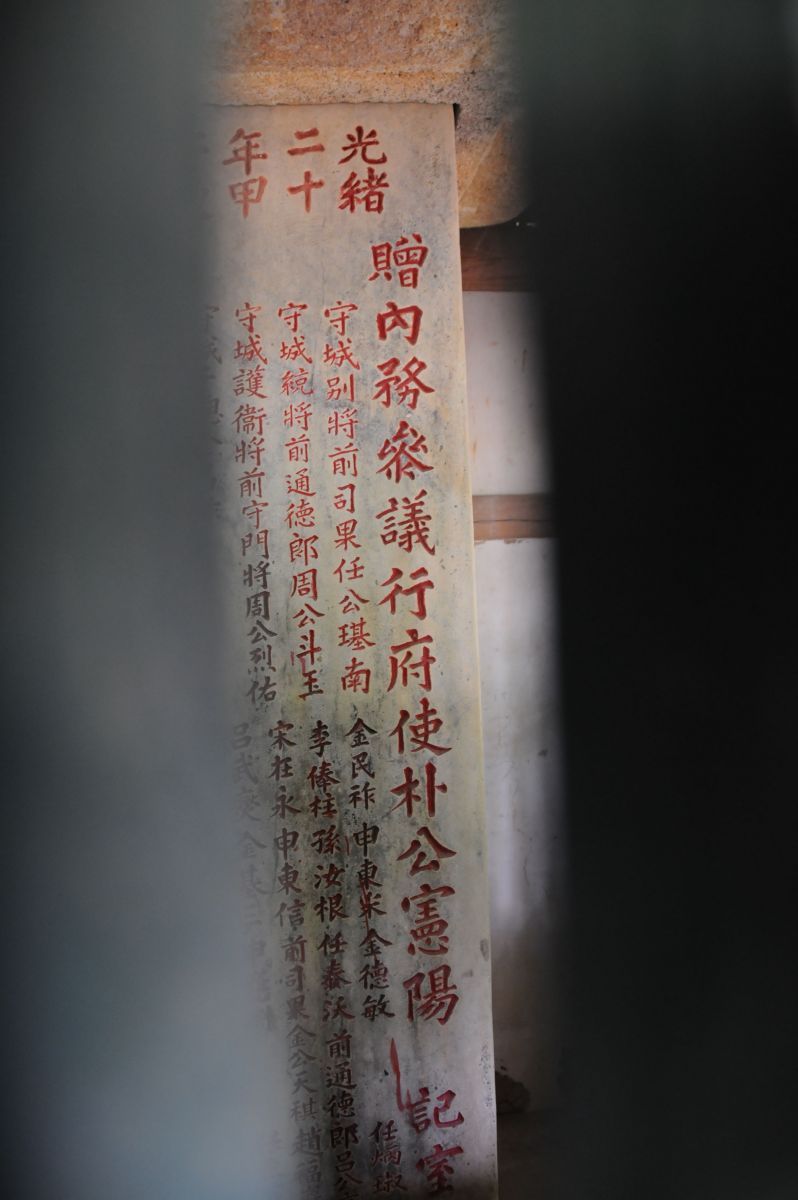 光緒
二十
年甲
贈內務參議行府使朴公憲陽 記室
守城別將前司果任公璂南 金民祚 申東 金德敏 任
守城統將前通德郎周公斗玉 李俸柱 孫汝根 任泰沃 前通德郎呂公
守城護衛將前守門將周公烈佑 宋在永 申東信 前司果金公天祺 趙福
呂武 金基